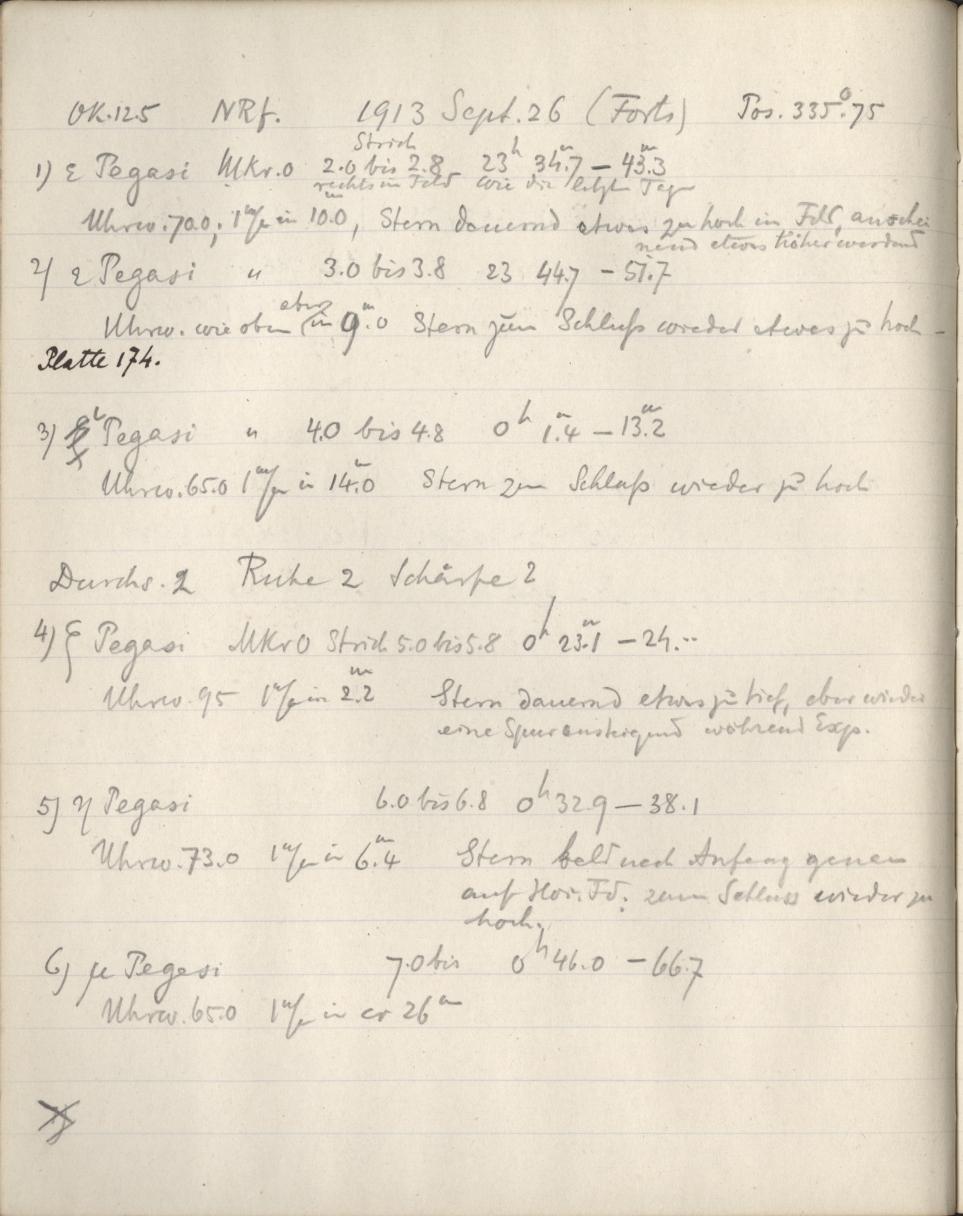 OK.12.5 NRf. 1913 Sept. 26 (Forts) Pos. 335°.75
Strich
1) ε Pegasi Mkr.0 2.0 bis 2.8 23h 34.m7 – 43.m3
rechts im Feld wie die letzten Tage
Uhrw. 70.0; 1 in 10.m0, Stern dauernd etwas zu hoch im Fd, anschei
nend etwas höher werdend
2) ε Pegasi " 3.0 bis 3.8 23 44.7 – 51.7
Uhrw. wie oben (aber in 9.m0 Stern zum Schluß wieder etwas zu hoch –
Platte 174.
3) Pegasi " 4.0 bis 4.8 0h 1.m4 – 13.m2
Uhrw. 65.0 1 in 14.m0 Stern zum Schluß wieder zu hoch
Durchs. 2 Ruhe 2 Schärfe 2
4) ξ Pegasi Mkr 0 Strich 5.0 bis 5.8 0h 23.m1 – 24...
Uhrw. 95 1 in 2.m2 Stern dauernd etwas zu tief, aber wieder
eine Spur ansteigend während Exp.
5) η Pegasi 6.0 bis 6.8 0h 32.9 – 38.1
Uhrw. 73.0 1 in 6.m4 Stern bald nach Anfang genau
auf Hor. Fd. zum Schluss wieder zu
hoch.
6) μ Pegasi 7.0 bis 0h 46.0 – 66.7
Uhrw. 65.0 1 in ca 26m